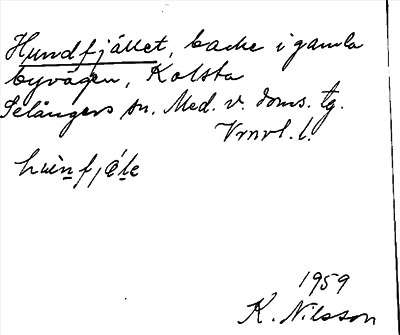 Hundfjället, backe i gamla
byvägen, Kolsta
Selångers sn. Med. v. doms. tg.
Vrnvl. l.
1959
K. Nilsson